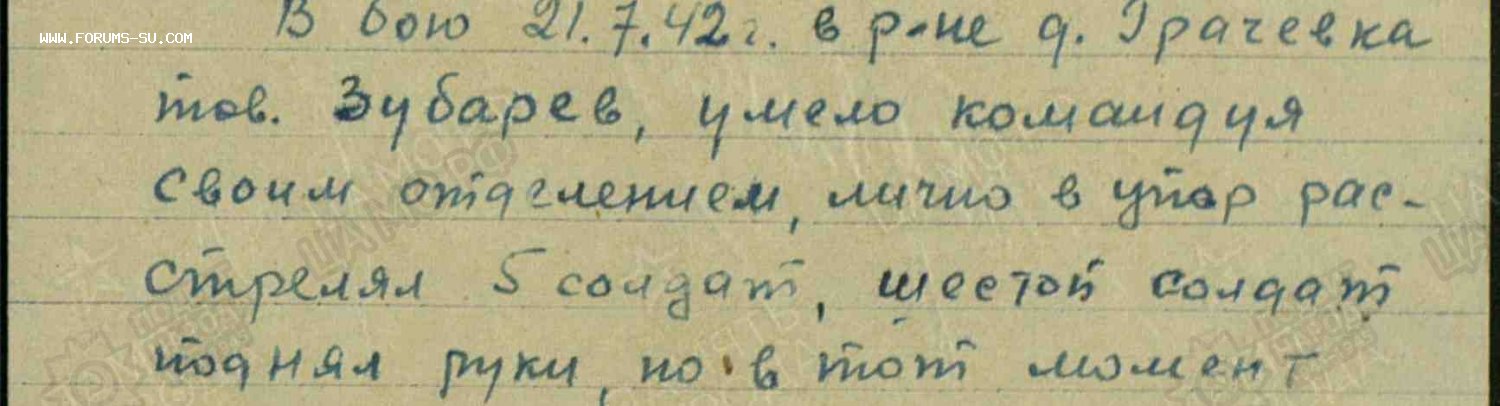 В бою 21.7.42г. в р-не д. Грачевка
WWW.FORUMS-SU.COM
тов. Зубарев, умело командуя
своим отделением, лично в упор рас-
стрелял 5 солдат, шестой солдат
поднял руки, но в тот момент